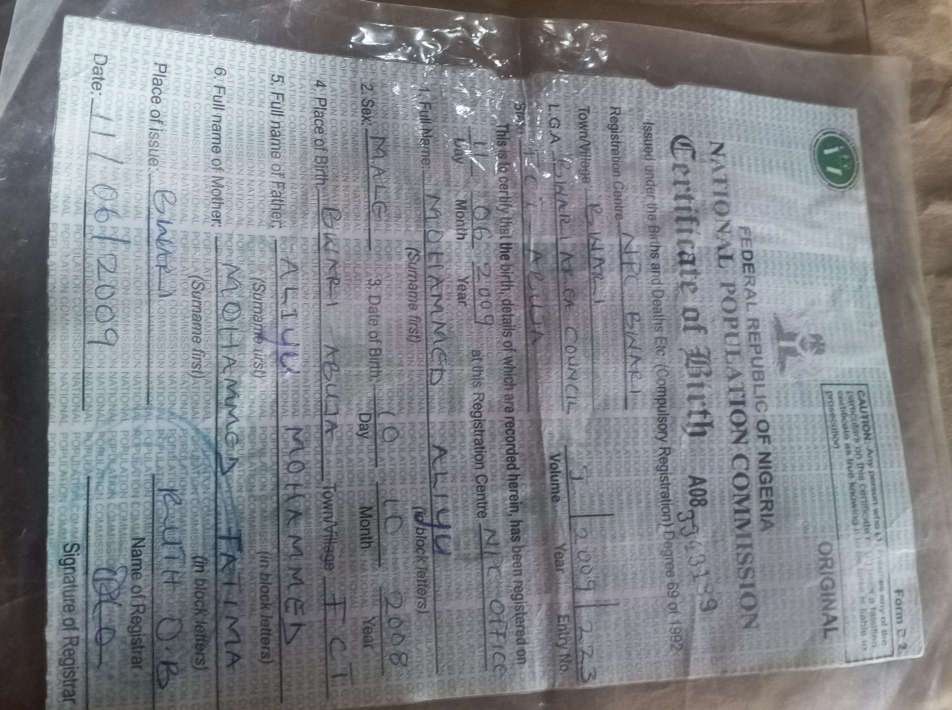 Form
CAUTION: Any person who
ORIGINAL
FEDERAL REPUBLIC OF NIGERIA
NATIONAL POPULATION COMMISSION
Certificate of Birth A08
Issued under the Births and Deaths Etc (Compulsory Registration) Degree 69 of 1992
Registration Centre NPC BWARI
Town/Village BWARI
L.G.A BWARI AREA COUNCIL 3 2009 223
Volume Year Entry No.
FCT ABUJA
This is to certify that the birth, details of which are recorded herein, has been registered on
11 06 2009 at this Registration Centre NPC OFFICE
Day Month Year
1. Full Name: MOHAMMED ALIYU
(Surname first) (In block letters)
2. Sex: MALE 3. Date of Birth: 10 10 2008
Day Month Year
4. Place of Birth BWARI ABUJA Town/Village FCT
5. Full name of Father: ALIYU MOHAMMED
(Surname first) (In block letters)
6. Full name of Mother: MOHAMMED FATIMA
(Surname first) (In block letters)
Place of issue: BWARI RUTH O.B
Name of Registrar
Date: 11/06/2009
Signature of Registrar